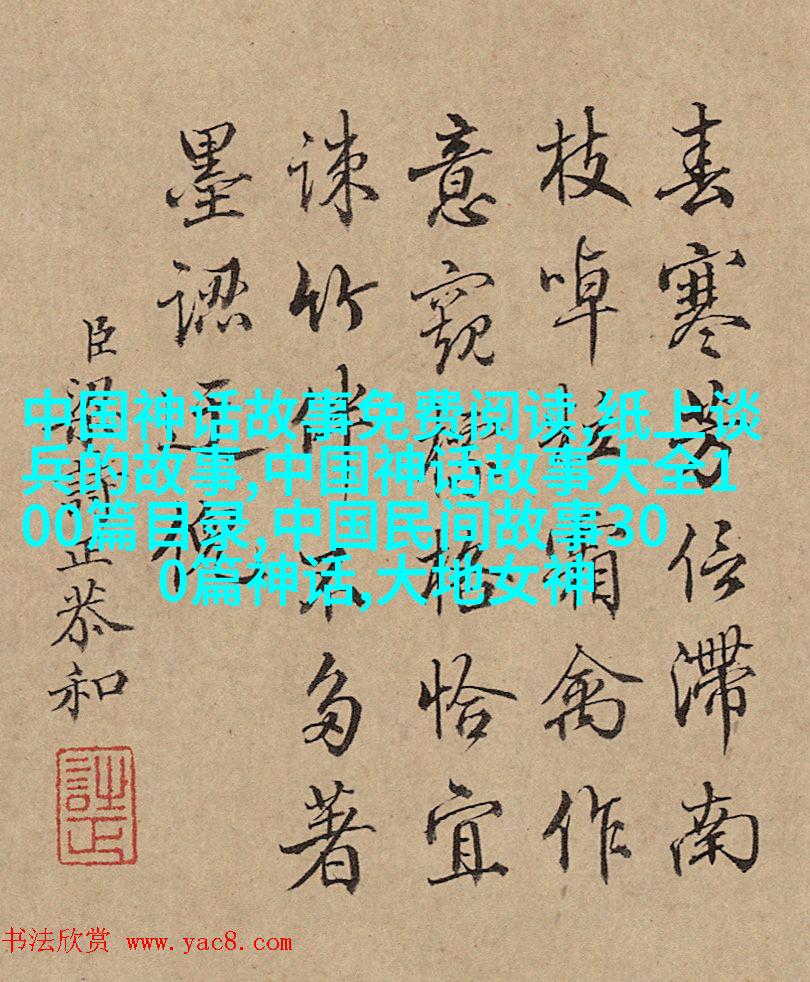 春寒芳信滯南
枝啅霜禽作
意窺格恰宜
疎竹伴不多著
墨認
臣梁詩正恭和
詩正
中国神话故事免费阅读,纸上谈
兵的故事,中国神话故事大全1
00篇目录,中国民间故事30
0篇神话,大地女神
书法欣赏 www.yac8.com